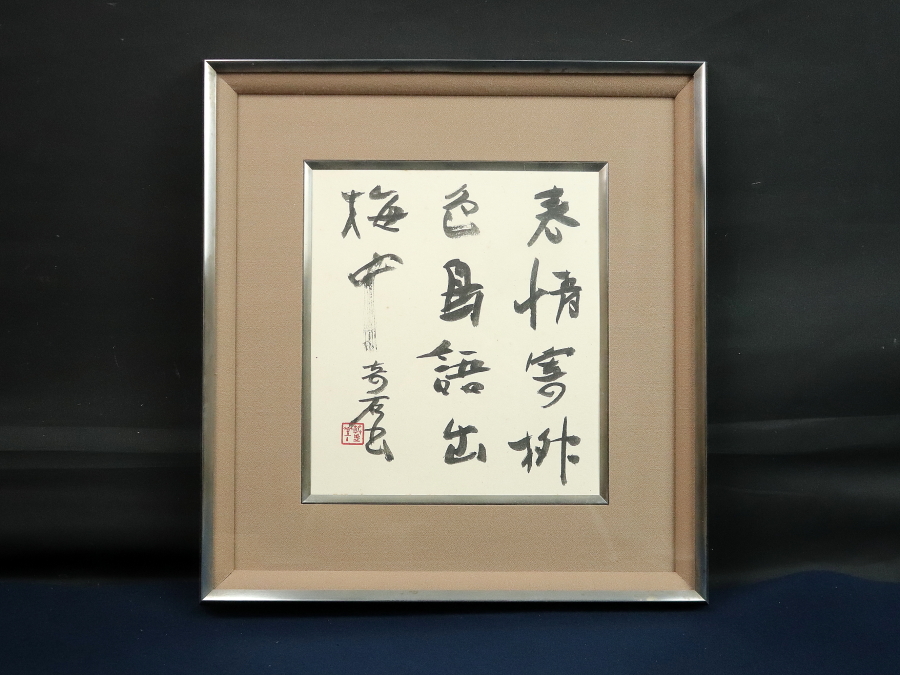 春情寄柳
色鳥語出
梅中
奇石書